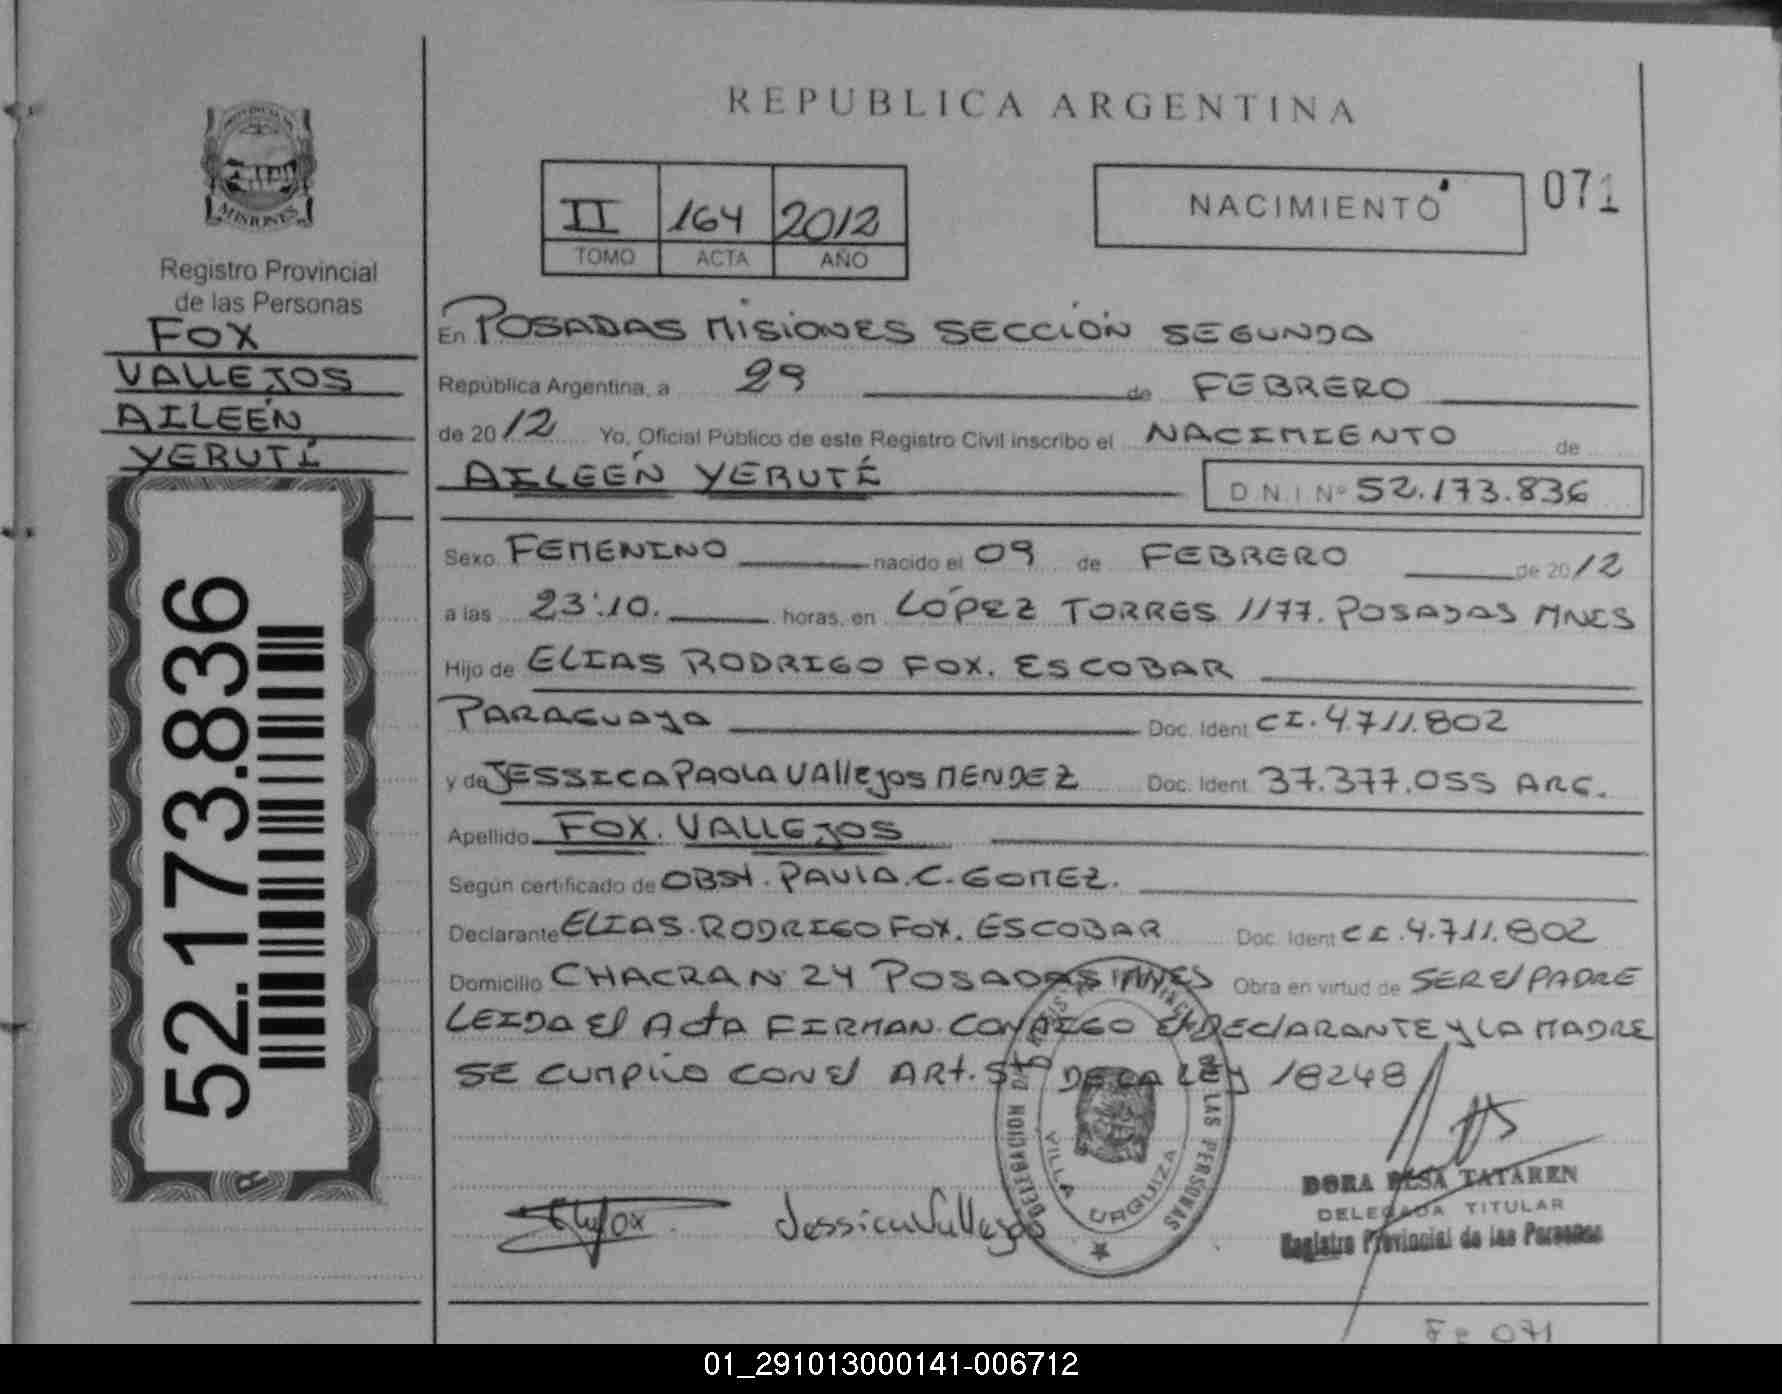 REPUBLICA ARGENTINA
MISIONES
Registro Provincial
de las Personas
FOX
VALLEJOS
AILEÉN
YERUTÍ
52.173.836
II 164 2012
TOMO ACTA AÑO
NACIMIENTO
071
En POSADAS MISIONES SECCIÓN SEGUNDA
República Argentina, a 29 de FEBRERO
de 2012 Yo, Oficial Público de este Registro Civil inscribo el NACIMIENTO de
AILEÉN YERUTÍ D.N.I. Nº 52.173.836
Sexo FEMENINO nacido el 09 de FEBRERO de 2012
a las 23:10. horas, en LÓPEZ TORRES 1177. POSADAS MNES
Hijo de ELIAS RODRIGO FOX. ESCOBAR
PARAGUAYA Doc. Ident CI.4.711.802
y de JESSICA PAOLA VAllejos MENDEZ Doc. Ident. 37.377.055 ARG.
Apellido FOX. VALLEJOS
Según certificado de OBSt. PAULA.C.GOMEZ.
Declarante ELIAS.RODRIGO FOX. ESCOBAR Doc. Ident CI.4.711.802
Domicilio CHACRA Nº 24 POSADAS MNES Obra en virtud de SER El PADRE
LEIDA El ActA FIRMAN CONMIGO El DEClARANTE y LA MADRE
SE CUMPLIO CON El ARt. 5º DE LA LEy 18248
DELEGACION
DE LAS PERSONAS
VILLA URQUIZA
Jessica Vallejos
DORA ELSA TATAREN
DELEGADA TITULAR
Registro Provincial de las Personas
Fº 071
01_291013000141-006712